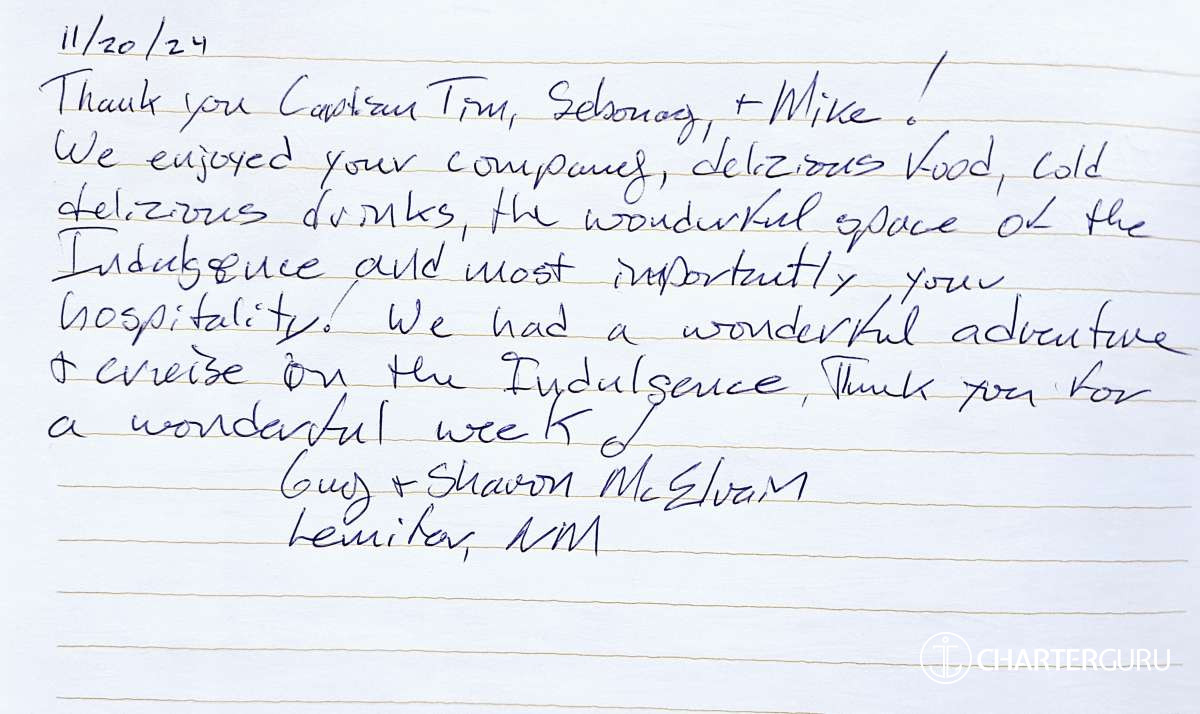 11/20/24
Thank you Captian Tim, + Mike!
We enjoyed your company, delizious food, cold
delizious drinks, the wonderful space of the
Indulgence and most importantly your
hospitality! We had a wonderful adventure
+ crueise on the Indulgence, Thank you for
a wonderful week!
Guy + Sharon McElvain
Lemitar, NM
CHARTERGURU